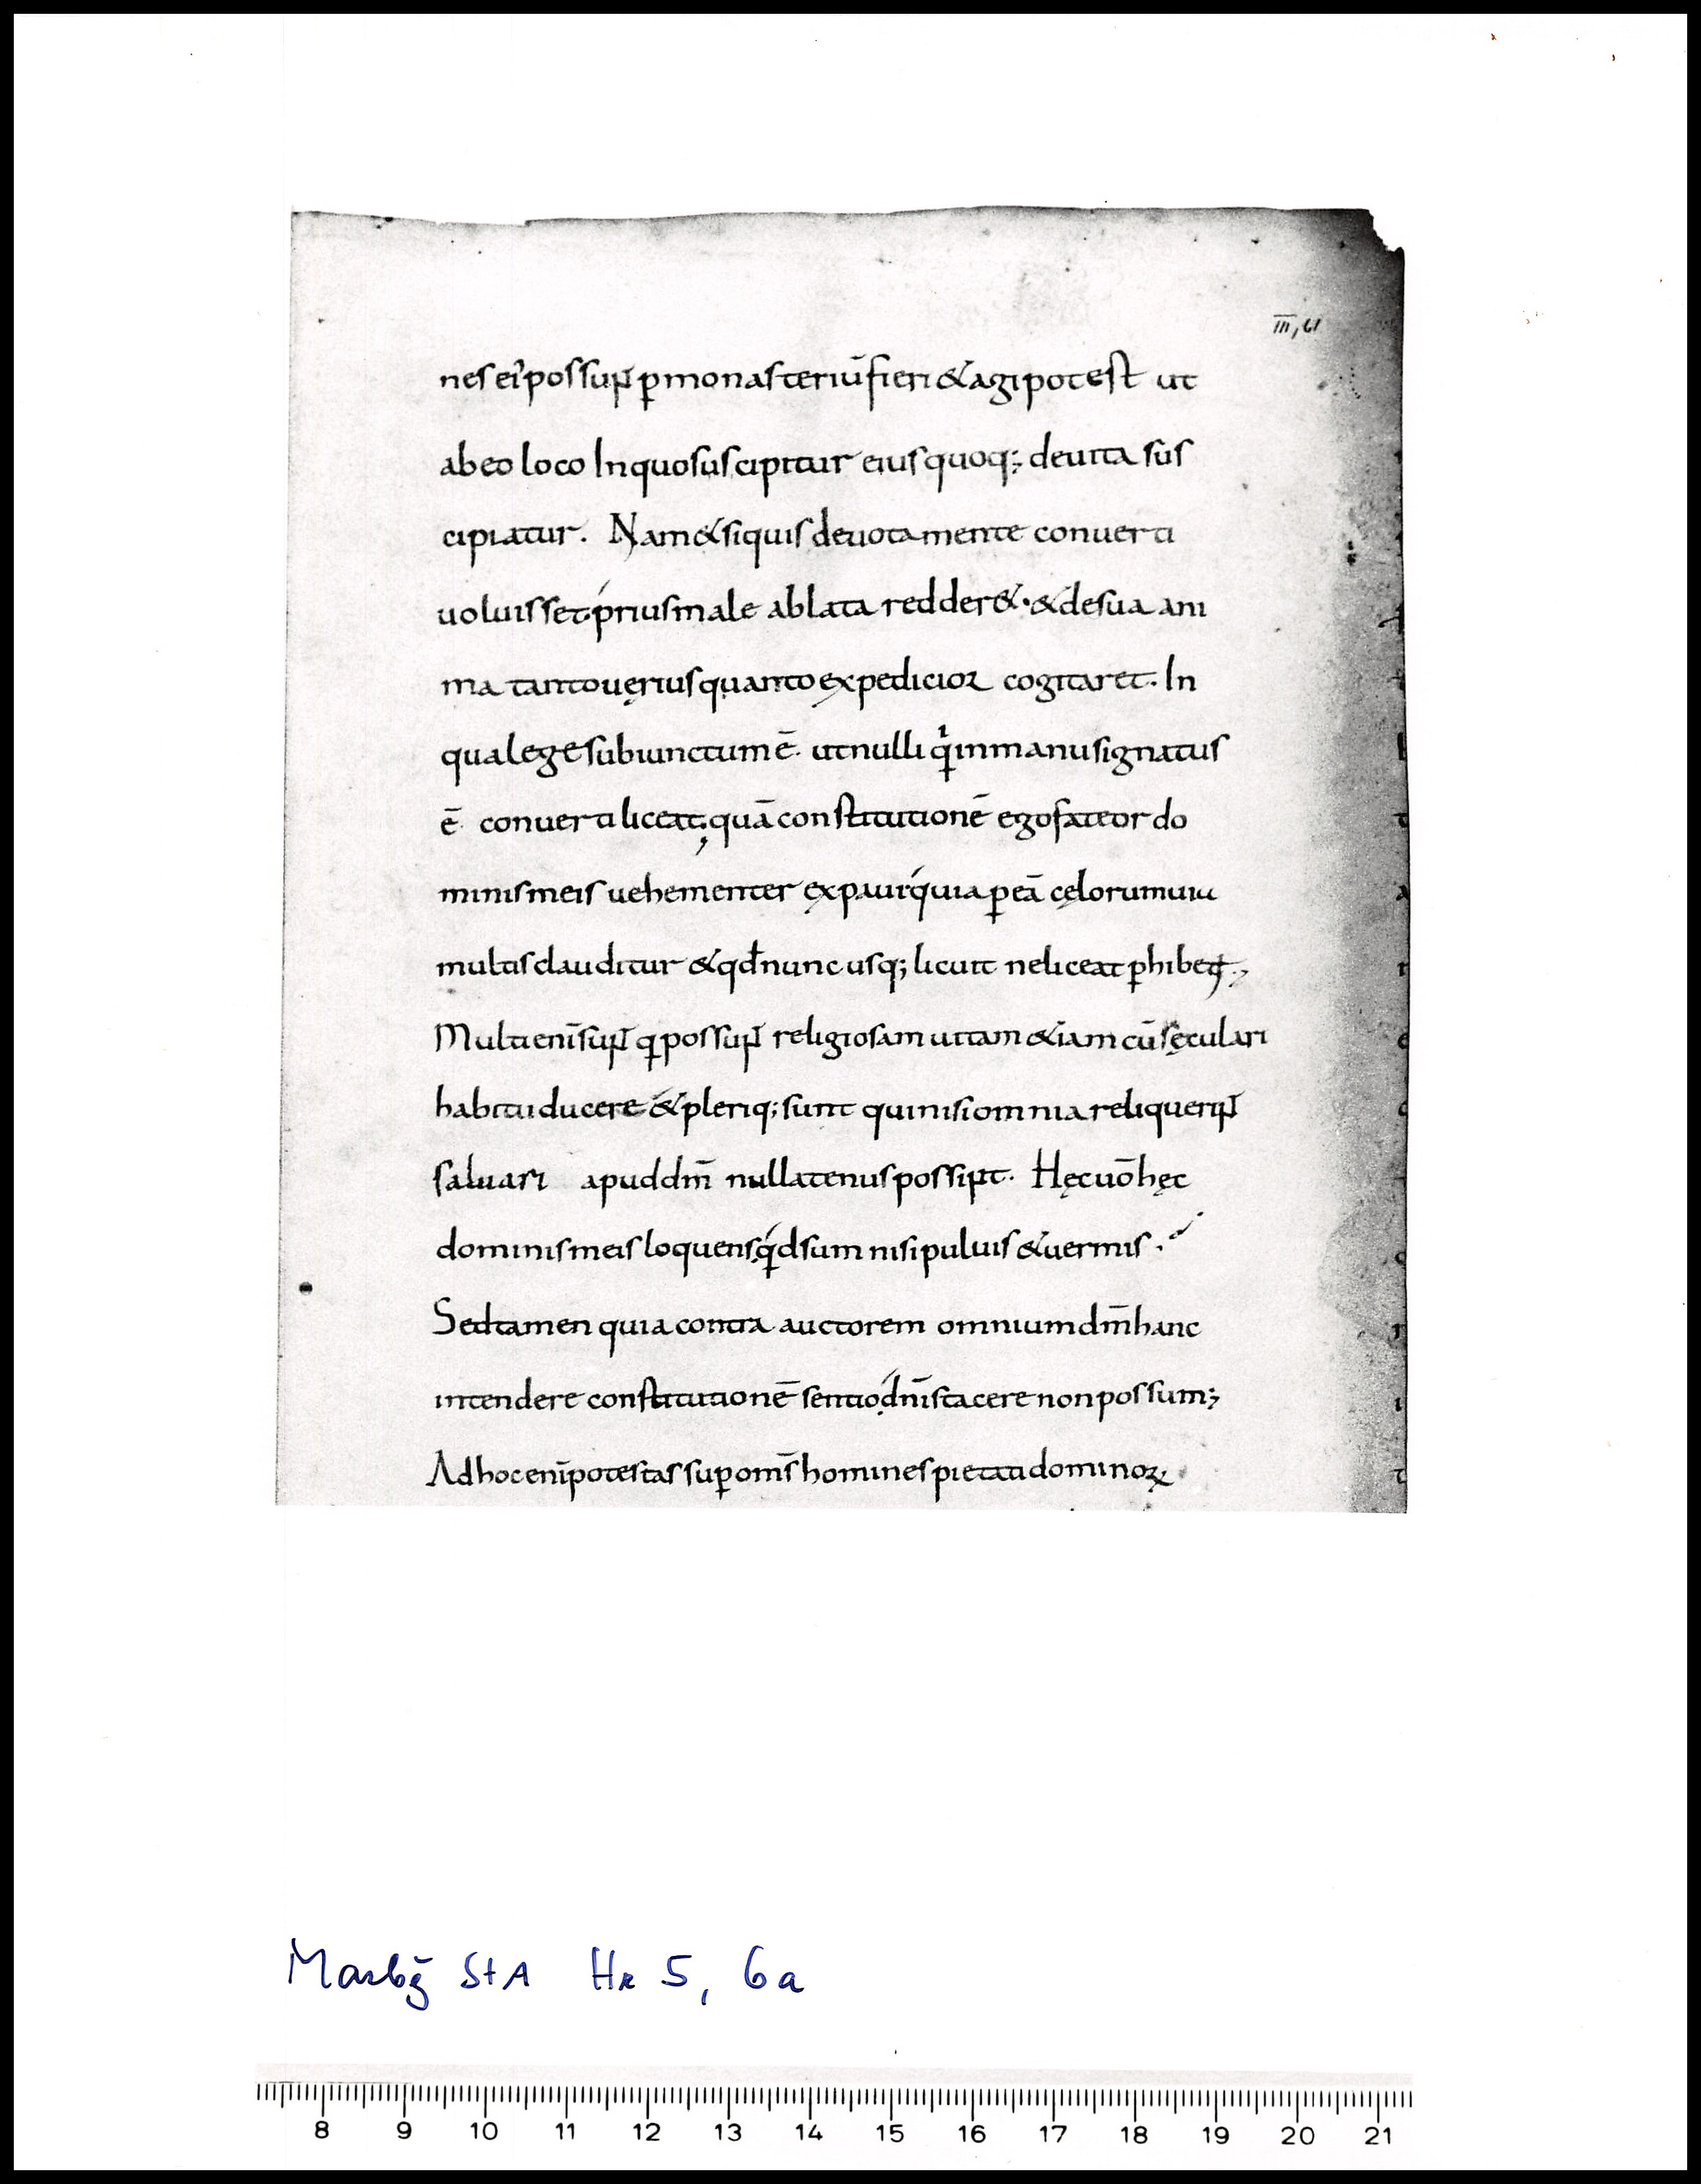 III, 61
nes ei' possuņ̄ ꝑ monasteriū fieri & agi potest ut
ab eo loco In quo suscipitur eius quoq; de uita sus
cipiatur. Nam & si quis deuota mente conuerti
uoluisset prius male ablata redder&. & de sua ani
ma tanto uęrius quanto expedicior cogitaret. In
qua lege subiunctum ē. ut nulli qͥ in manu signatus
ē. conuerti liceat; quā constitutionē ego fateor do
minis meis uehementer expaui quia ꝑ eā cęlorum uia
multis clauditur & qđ nunc usq; licuit ne liceat ꝓhibet̃.
Multi enī sun̄ q possun̄ religiosam uitam &iam cū sęculari
habitu ducere & pleriq; sunt qui nisi omnia reliquerin̄
saluari apud dm̄ nullatenus possint. Hęc uō hęc
dominis meis loquens qͥd sum nisi puluis & uermis.
Sed tamen quia contra auctorem omnium dm̄ hanc
intendere constitutionē sentio dnīs tacere non possum;
Ad hoc enī potestas suꝑ om̄s homines pietati dominoꝝ
Marbg StA Hr 5, 6a
8 9 10 11 12 13 14 15 16 17 18 19 20 21